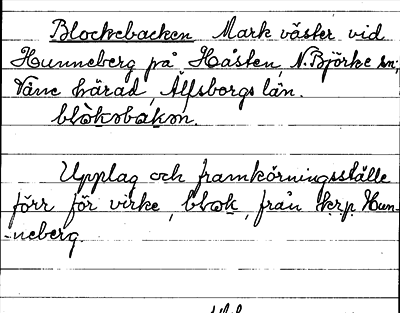 Blockebacken Mark väster vid
Hunneberg på Håsten, N. Björke sn;
Väne härad, Älfsborgs län.
blòkəbakən.
Upplag och framkörningsställe
förr för virke, blok, från krp. Hun-
-neberg.